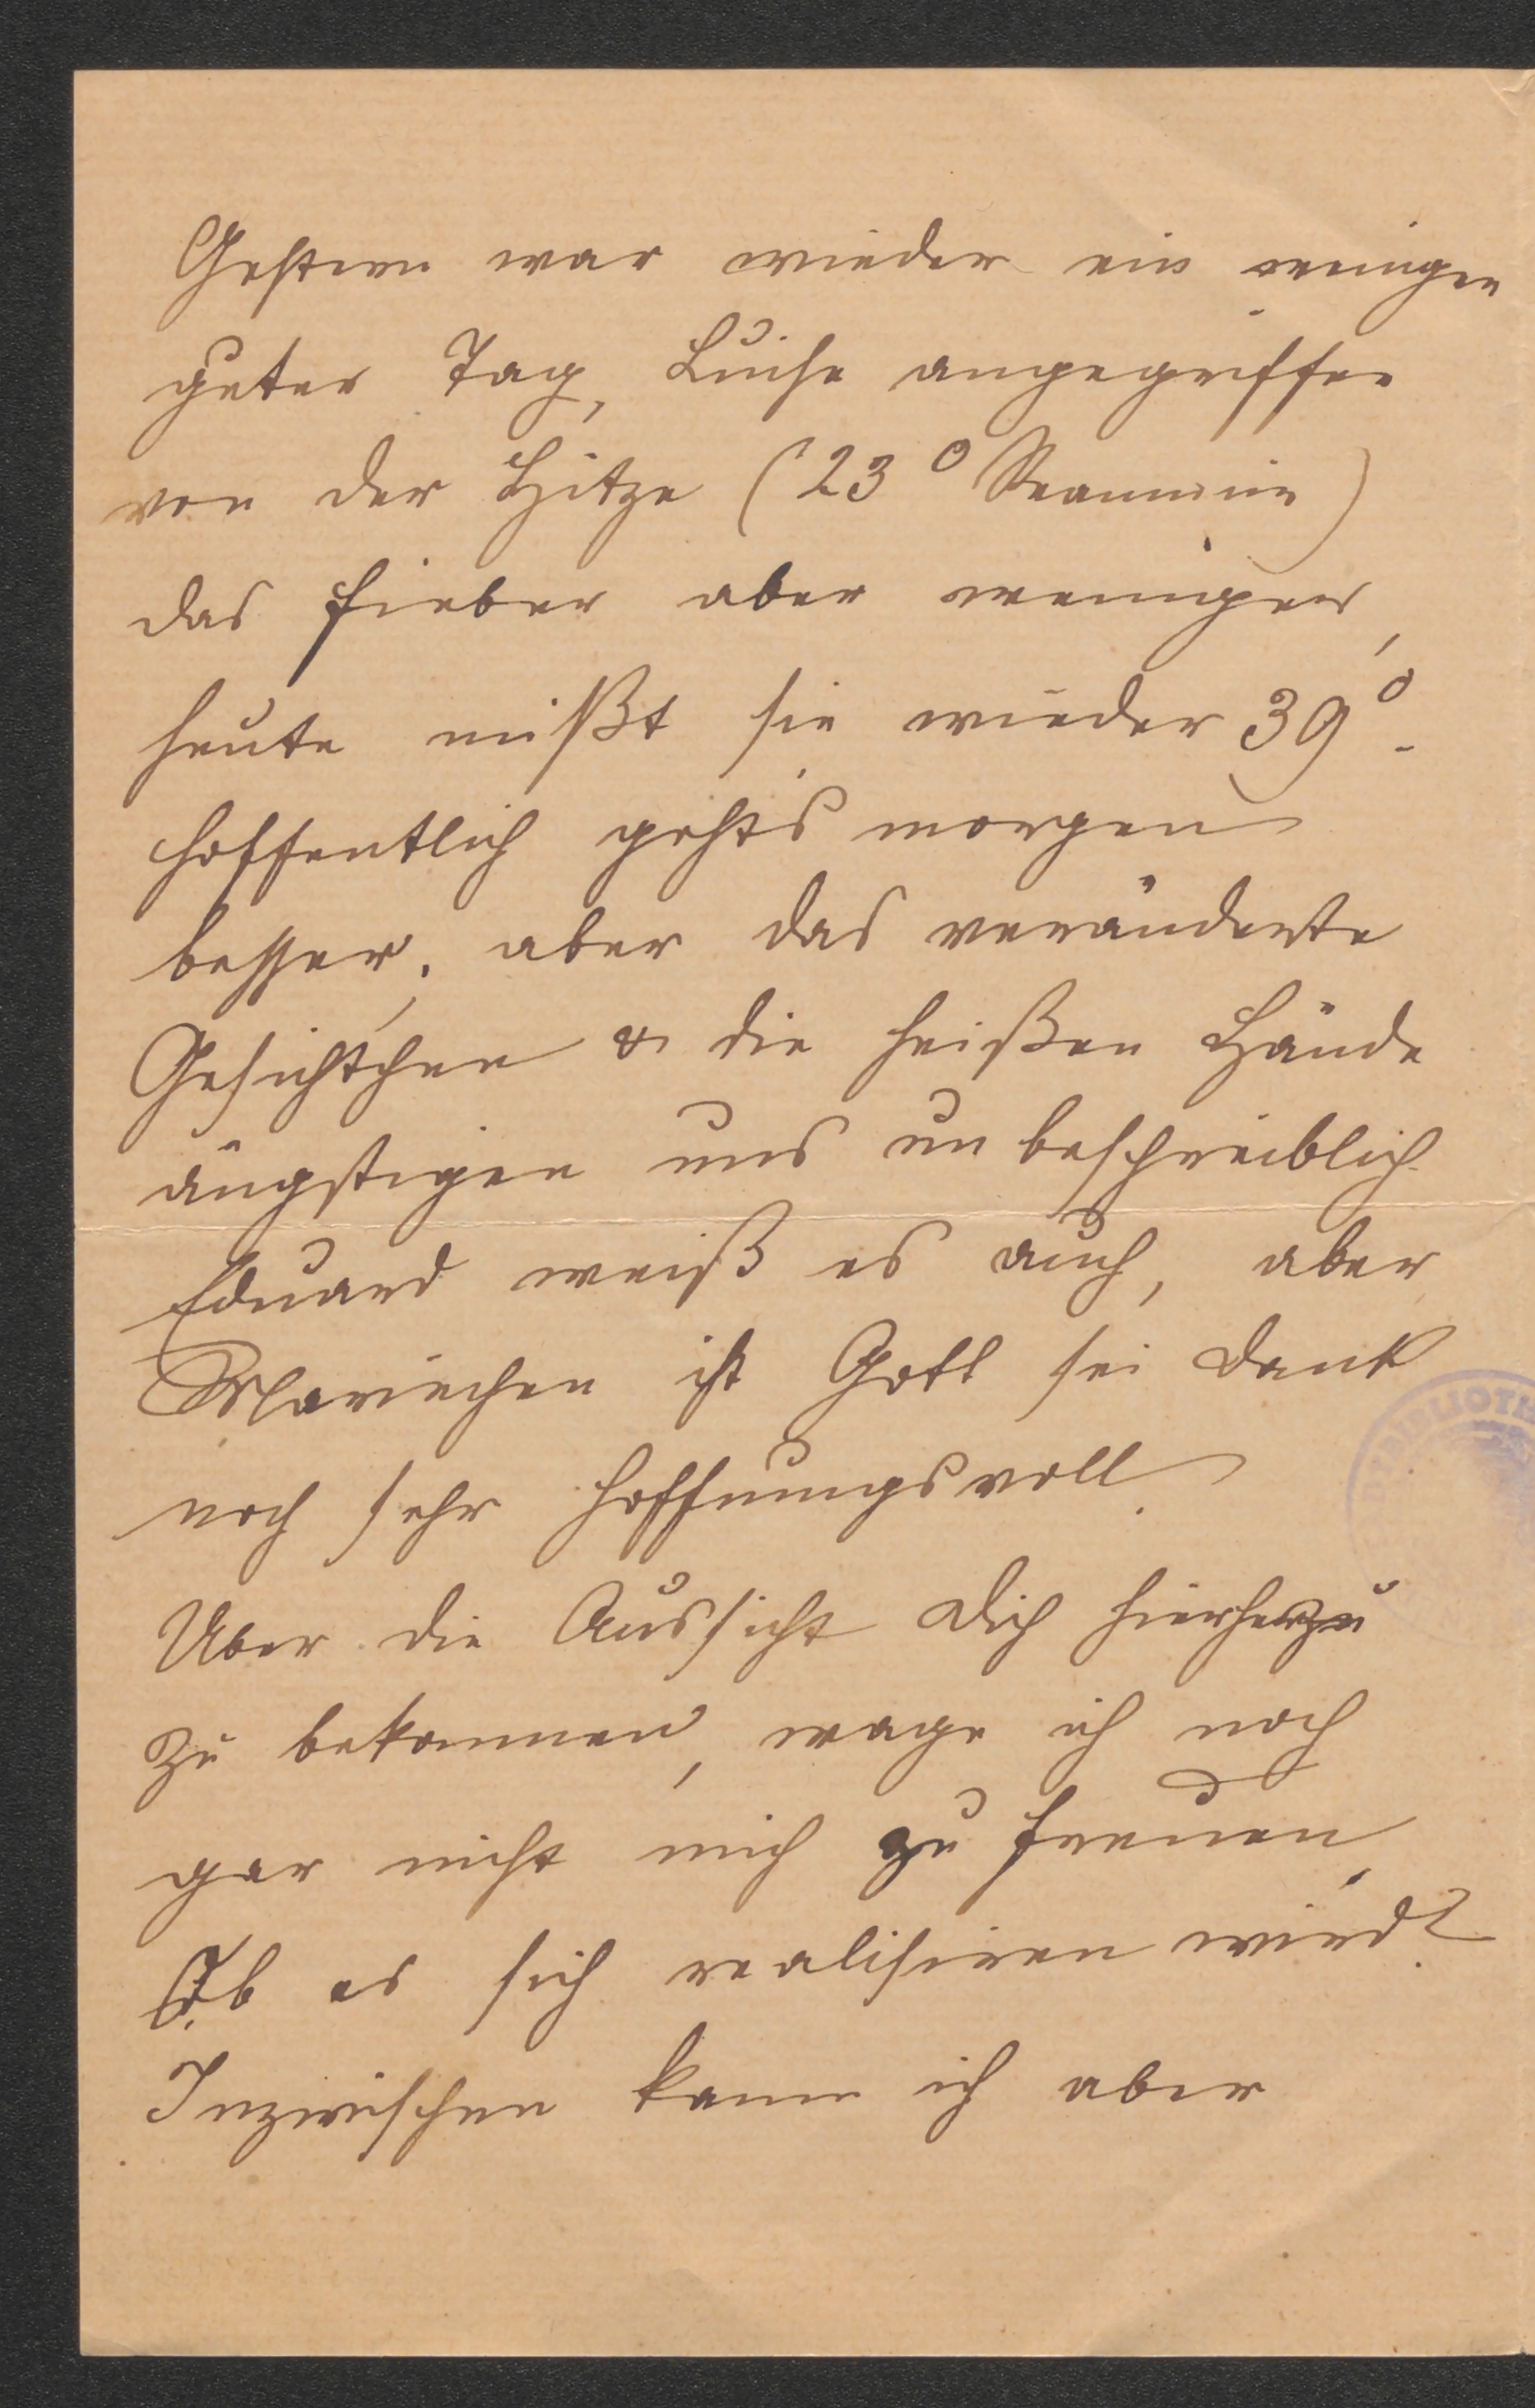 Gestern war wieder ein weniger
guter Tag, Luise angegriffen
von der Hitze (23° Reaumur)
das Fieber aber weniger,
heute mißt sie wieder 39°.
hoffentlich gehts morgen
besser; aber das veränderte
Gesichtchen & die heißen Hände
ängstigen uns unbeschreiblich
Eduard weiß es auch, aber
Mariechen ist Gott sei Dank
noch sehr hoffnungsvoll.
Über die Aussicht Dich hierherzu
zu bekommen, wage ich noch
gar nicht mich zu freuen,
Ob es sich realisiren wird?
Inzwischen kann ich aber
BIBLIOTH